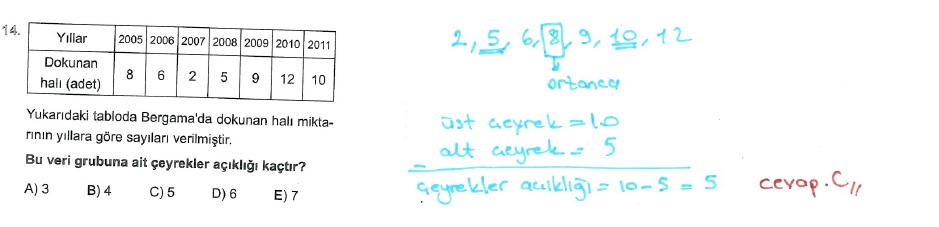 14.
Yıllar 2005 2006 2007 2008 2009 2010 2011
Dokunan halı (adet) 8 6 2 5 9 12 10
Yukarıdaki tabloda Bergama'da dokunan halı mikta-
rının yıllara göre sayıları verilmiştir.
Bu veri grubuna ait çeyrekler açıklığı kaçtır?
A) 3 B) 4 C) 5 D) 6 E) 7
2, 5, 6, 8, 9, 10, 12
ortanca
üst çeyrek = 10
alt çeyrek = 5
çeyrekler açıklığı = 10 - 5 = 5
cevap. C//